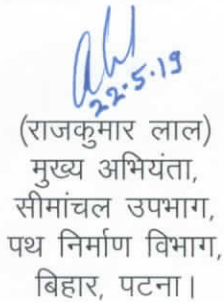 22.5.19
(राजकुमार लाल)
मुख्य अभियंता,
सीमांचल उपभाग,
पथ निर्माण विभाग,
बिहार, पटना।